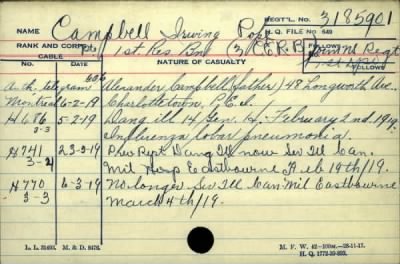 NAME Campbell Irving Pope REGT'L. NO. 3185901
H. Q. FILE NO. 649
RANK AND CORPS Pte 1st Res Bn
CABLE NATURE OF CASUALTY FOLLOWS
Auth. telegram Alexander Campbell (father) 148 Longworth Ave.,
Montreal 6-2-19 Charlottetown, P.E.I.
H 686 5-2-19 Dang ill 14 Gen. H, February 2nd 1919
3-3 Influenza lobar pneumonia.
H 741 23-2-19 Prev Rept Dang Ill now Ser Ill Can.
3-2 Mil Hosp Eastbourne Feb 19th/19.
H 770 6-3-19 No longer Ser Ill Can Mil Eastbourne
3-3 March 4th/19.
L. L. 35493. M. & D. 8476. M. F. W. 42-100M.-28-11-17.
H. Q. 1772-39-893.